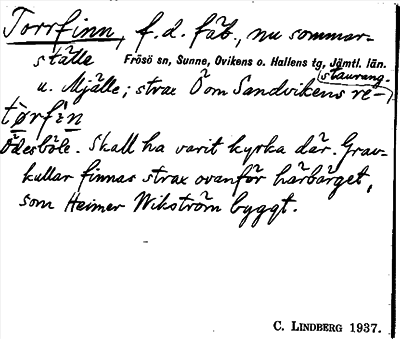 Torrfinn, f.d. fäb., nu sommar-
ställe Frösö sn, Sunne, Ovikens o. Hallens tg, Jämtl. län.
u. Mjälle; strax Ö om Sandvikens re-
(staurang.
tørfin
Ödesböle. Skall ha varit kyrka där. Grav-
kullar finnas strax ovanför härbärget,
som Heimer Wikström byggt.
C. LINDBERG 1937.